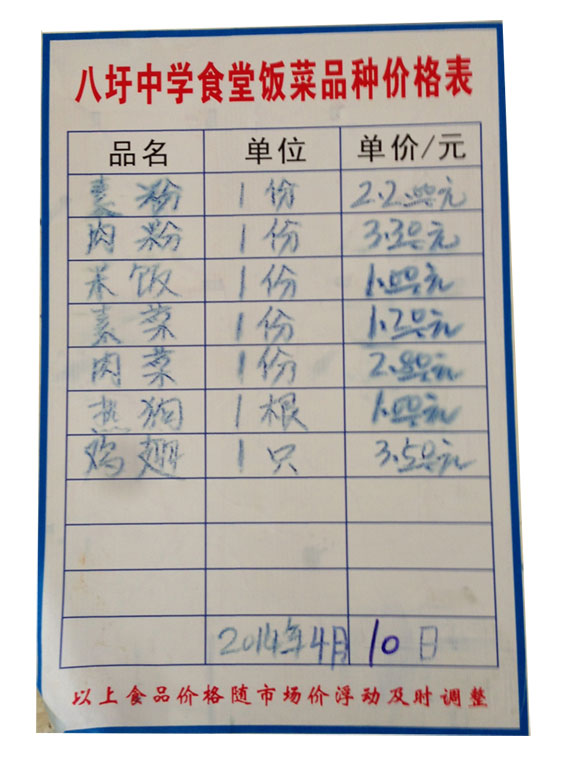 八圩中学食堂饭菜品种价格表
品名 单位 单价/元
素粉 1份 2.20元
肉粉 1份 3.30元
米饭 1份 1.00元
素菜 1份 1.20元
肉菜 1份 2.80元
热狗 1根 1.00元
鸡翅 1只 3.50元
2014年4月10日
以上食品价格随市场价浮动及时调整